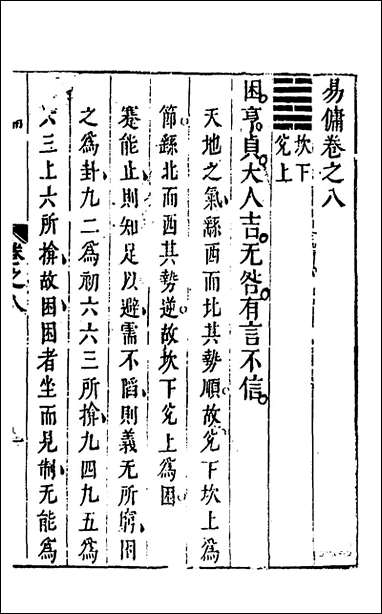 易傭卷之八
坎下
兊上
困亨貞大人吉无咎有言不信
天地之氣繇西而北其勢順故兊下坎上爲
節繇北而西其勢逆故坎下兊上爲困
蹇能止則知足以避需不䧟則義无所窮困
之爲卦九二爲初六六三所揜九四九五爲
六三上六所揜故困困者坐而見制无能爲
卷之八